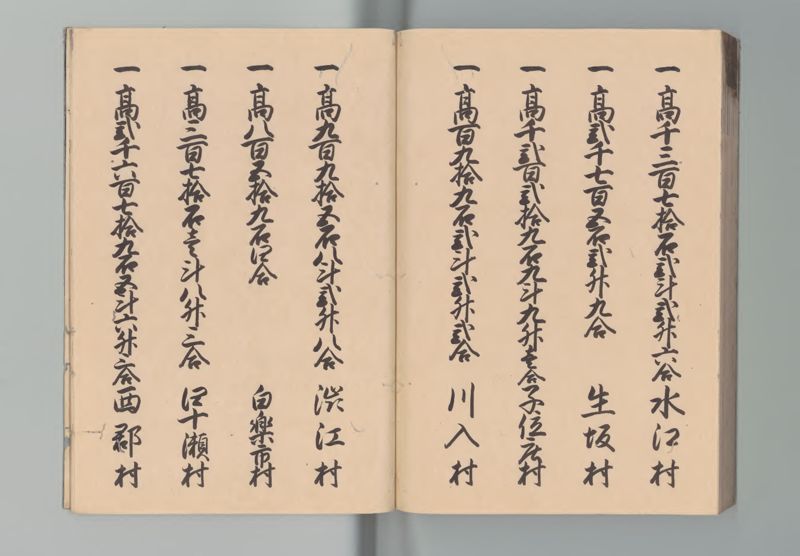 一高千三百七拾石弐斗弐升六合水江村
一高弐千七百五石弐升九合生坂村
一高千弐百弐拾九石九斗九升壱合子位庄村
一高百九拾九石弐斗弐升弐合川入村
一高九百九拾五石八斗弐升八合澁江村
一高八百五拾九石四合白樂市村
一高二百七拾石壱斗八升三合四十瀬村
一高弐千六百七拾九石五斗六升六合西郡村